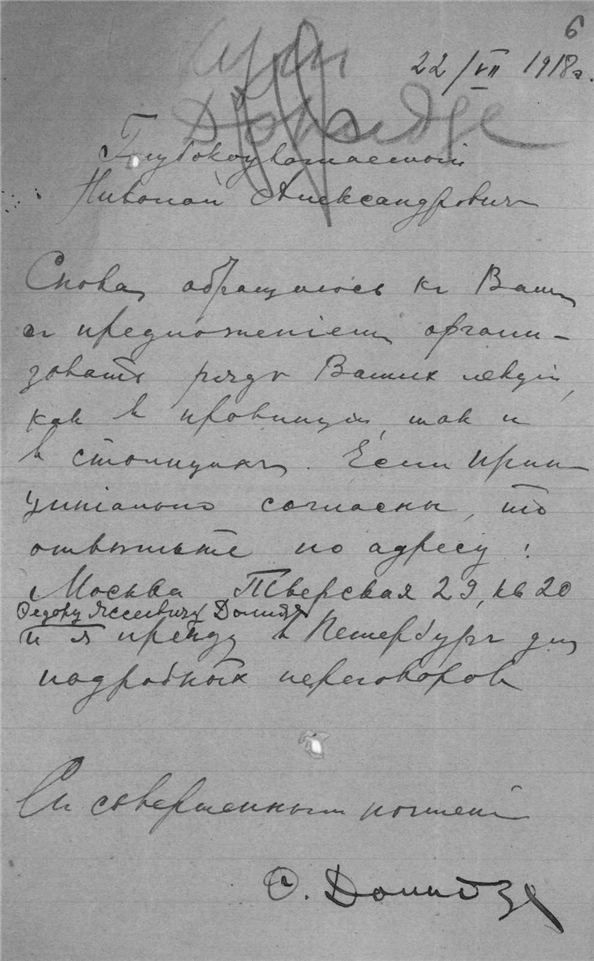 6
22/VII 1918г.
Долидзе
Глубокоуважаемый
Николай Александрович
Снова обращаюсь къ Вамъ
съ предложеніемъ органи-
зовать рядъ Вашихъ лекцій,
как в провинціи, так и
в столицахъ. Если прин-
ципіально согласны, то
отвѣтьте по адресу:
Москва Тверская 29, кв 20
Федору Яссеевичу Долидзе
и я пріеду в Петербургъ для
подробных переговоровъ
Съ совершеннымъ почтені
Ѳ. Долидзе